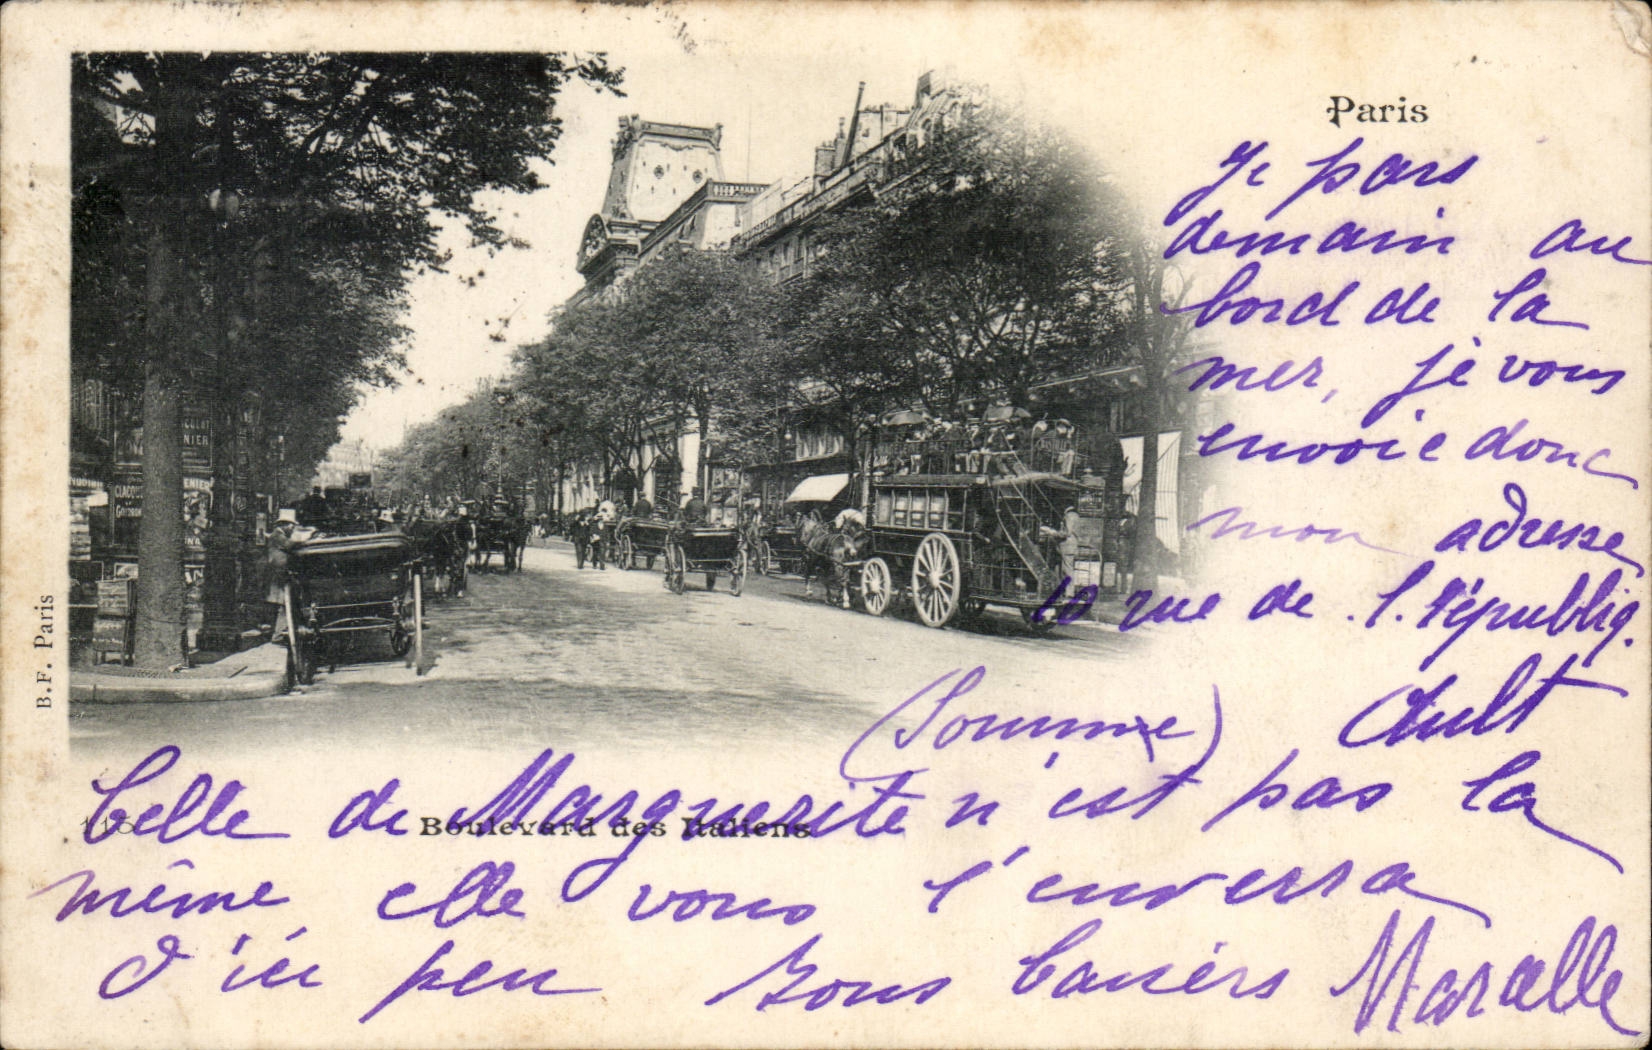 Paris
Je pars
demain au
bord de la
mer, je vous
envoie donc
mon adresse
10 rue de l. républiq.
Ault
(Somme)
celle de Marguerite n'est pas la
même elle vous l'enverra
d'ici peu bons baisers Marcelle
116
Boulevard des Italiens
B.F. Paris